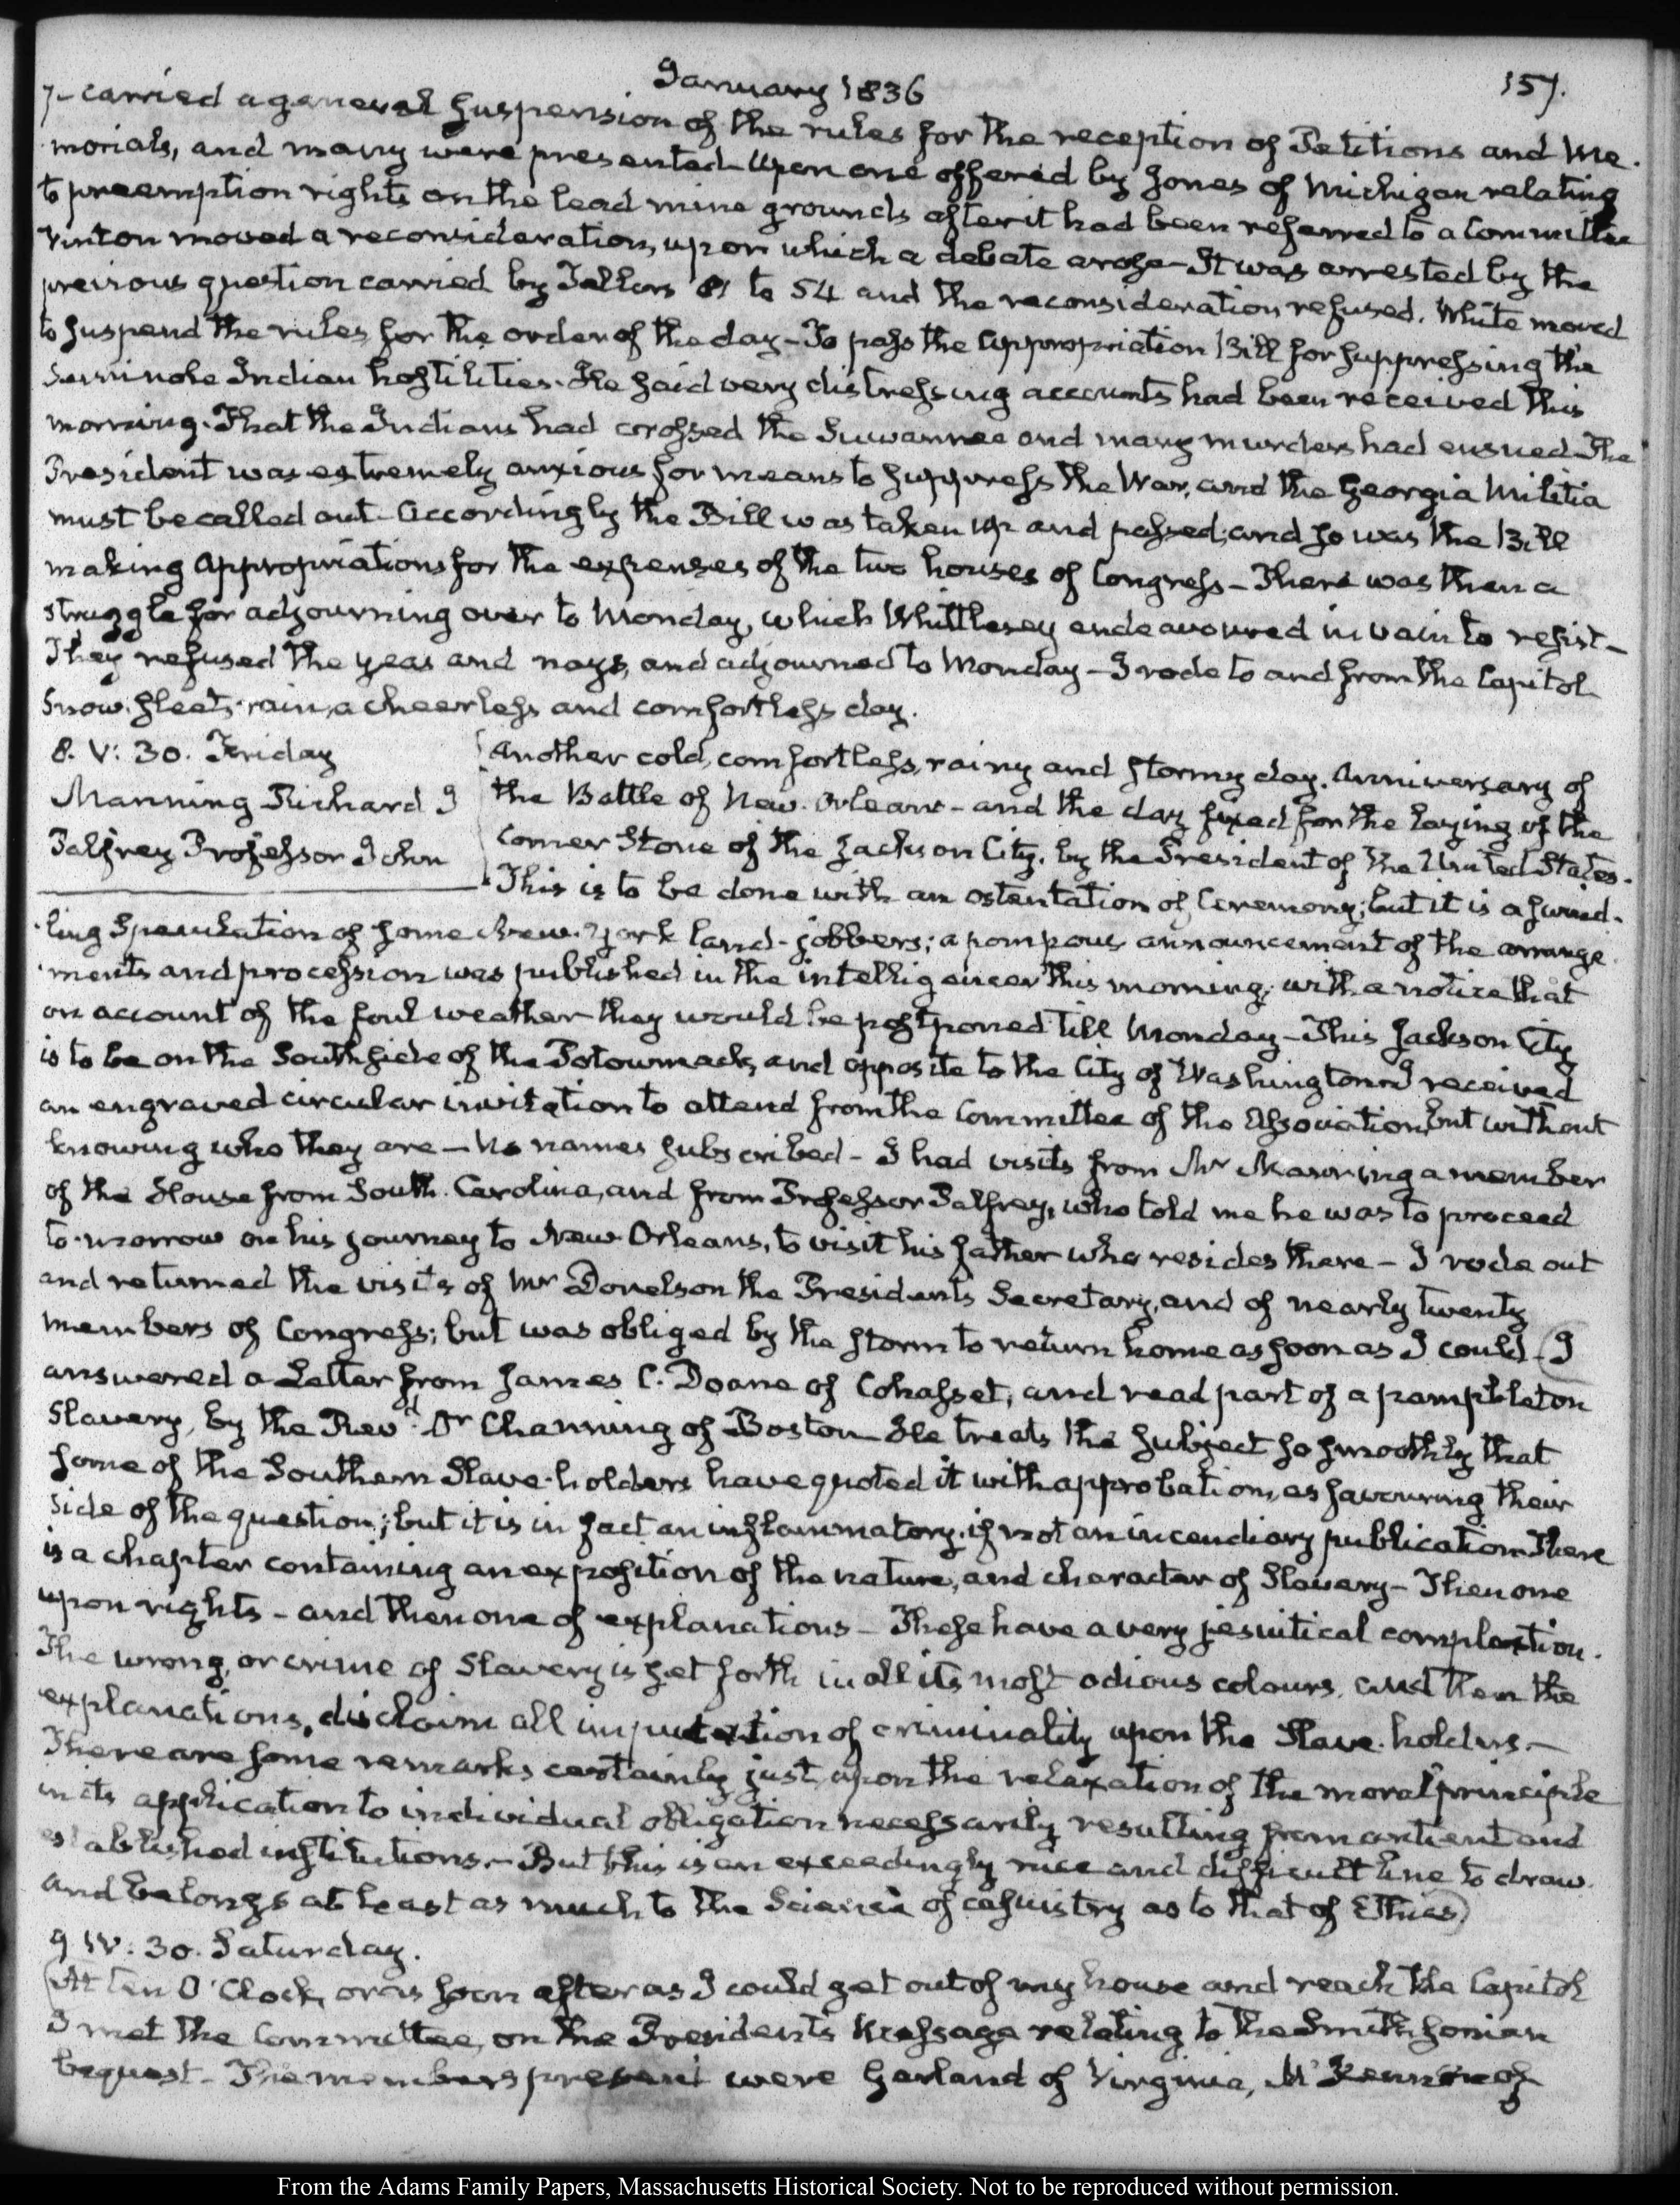 January 1836
157.
7- carried a general suspension of the rules for the reception of Petitions and Me-
morials, and many were presented. Upon one offered by Jones of Michigan relating
to preemption rights on the lead mine grounds after it had been referred to a Committee
Vinton moved a reconsideration, upon which a debate arose- It was arrested by the
previous question carried by Tellers 81 to 54 and the reconsideration refused. White moved
to suspend the rules, for the order of the day- To pass the appropriation Bill for suppressing the
Seminole Indian hostilities. He said very distressing accounts had been received this
morning. That the Indians had crossed the Suwannee and many murders had ensued. The
President was extremely anxious for means to suppress the War, and the Georgia Militia
must be called out- Accordingly the Bill was taken up and passed; and so was the Bill
making appropriations for the expenses of the two houses of Congress- There was then a
struggle for adjourning over to Monday, which Whittlesey endeavoured in vain to resist-
They refused the yeas and nays, and adjourned to Monday- I rode to and from the Capitol
Snow, sleet, rain, a cheerless and comfortless day.
8. V: 30. Friday
Manning Richard I
Palfrey Professor John
Another cold, comfortless, rainy and stormy day. Anniversary of
the Battle of New-Orleans- and the day fixed for the laying of the
Corner Stone of the Jackson City, by the President of the United States.
This is to be done with an ostentation of Ceremony; but it is a swind-
ling Speculation of some New-York land-jobbers; a pompous announcement of the arrange-
ments and procession was published in the intelligencer this morning; with a notice that
on account of the foul weather they would be postponed till Monday- This Jackson City
is to be on the South side of the Potowmack, and opposite to the City of Washington. I received
an engraved circular invitation to attend from the Committee of the Association, but without
knowing who they are- No names subscribed- I had visits from Mr Manning a member
of the House from South-Carolina, and from Professor Palfrey, who told me he was to proceed
to-morrow on his journey to New-Orleans, to visit his father who resides there- I rode out
and returned the visits of Mr Donelson the Presidents Secretary, and of nearly twenty
members of Congress; but was obliged by the storm to return home as soon as I could- (I
answered a Letter from James C. Doane of Cohasset, and read part of a pamphlet on
Slavery, by the Revd. Dr Channing of Boston- He treats the subject so smoothly that
some of the Southern Slave-holders have quoted it with approbation, as favouring their
side of the question; but it is in fact an inflammatory, if not an incendiary publication. There
is a chapter containing an exposition of the nature, and character of Slavery- Then one
upon rights- and then one of explanations- These have a very jesuitical complexion.
The wrong, or crime of Slavery is set forth in all its most odious colours, and then the
explanations, disclaim all imputation of criminality upon the Slave-holders.-
There are some remarks certainly just, upon the relaxation of the moral principle
in its application to individual obligation necessarily resulting from antient and
established institutions.- But this is an exceedingly nice and difficult line to draw
and belongs at least as much to the Science of casuistry as to that of Ethics)
9. IV: 30. Saturday.
(At ten O'Clock, or as soon after as I could get out of my house and reach the Capitol
I met the Committee, on the President's Message relating to the Smithsonian
bequest- The members present were Garland of Virginia, McKennan of
From the Adams Family Papers, Massachusetts Historical Society. Not to be reproduced without permission.